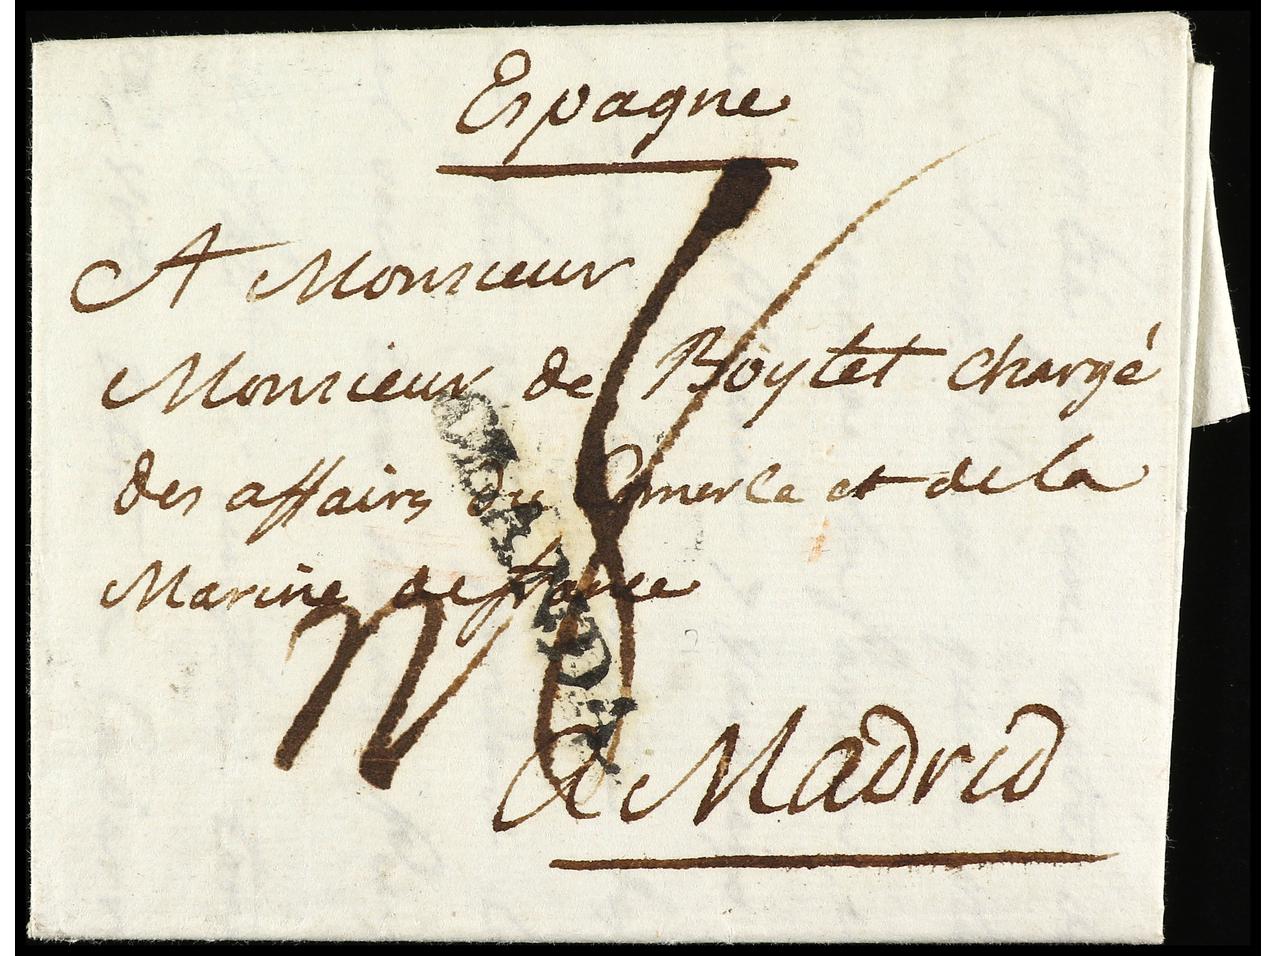 Espagne
A Monsieur
Monsieur de Boytet chargé
des affaires du Comerce et de la
Marine de france
a Madrid